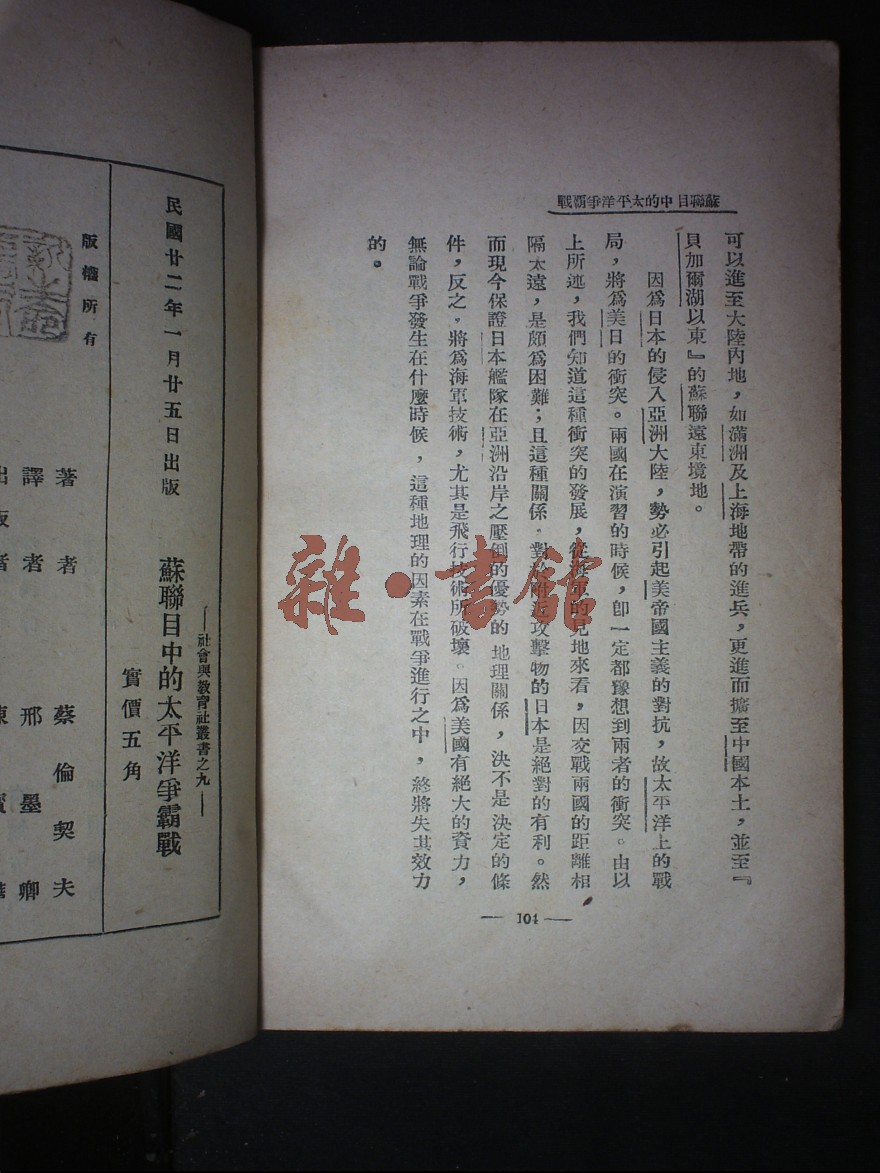 蘇聯目中的太平洋爭霸戰
可以進至大陸內地，如滿洲及上海地帶的進兵，更進而擴至中國本土，並至『
貝加爾湖以東』的蘇聯遠東境地。
因爲日本的侵入亞洲大陸，勢必引起美帝國主義的對抗，故太平洋上的戰
局，將爲美日的衝突。兩國在演習的時候，卽一定都豫想到兩者的衝突。由以
上所述，我們知道這種衝突的發展，從海軍的見地來看，因交戰兩國的距離相
隔太遠，是頗爲困難；且這種關係，對於附近攻擊物的日本是絕對的有利。然
而現今保證日本艦隊在亞洲沿岸之壓倒的優勢的地理關係，決不是決定的條
件，反之，將爲海軍技術，尤其是飛行技術所破壞。因爲美國有絕大的資力，
無論戰爭發生在什麼時候，這種地理的因素在戰爭進行之中，終將失其效力
的。
— 104 —
雜·書館
— 社會與教育社叢書之九 —
蘇聯目中的太平洋爭霸戰
實價五角
民國廿二年一月廿五日出版
版權所有
著者 蔡倫契夫
譯者 邢墨卿
出版者